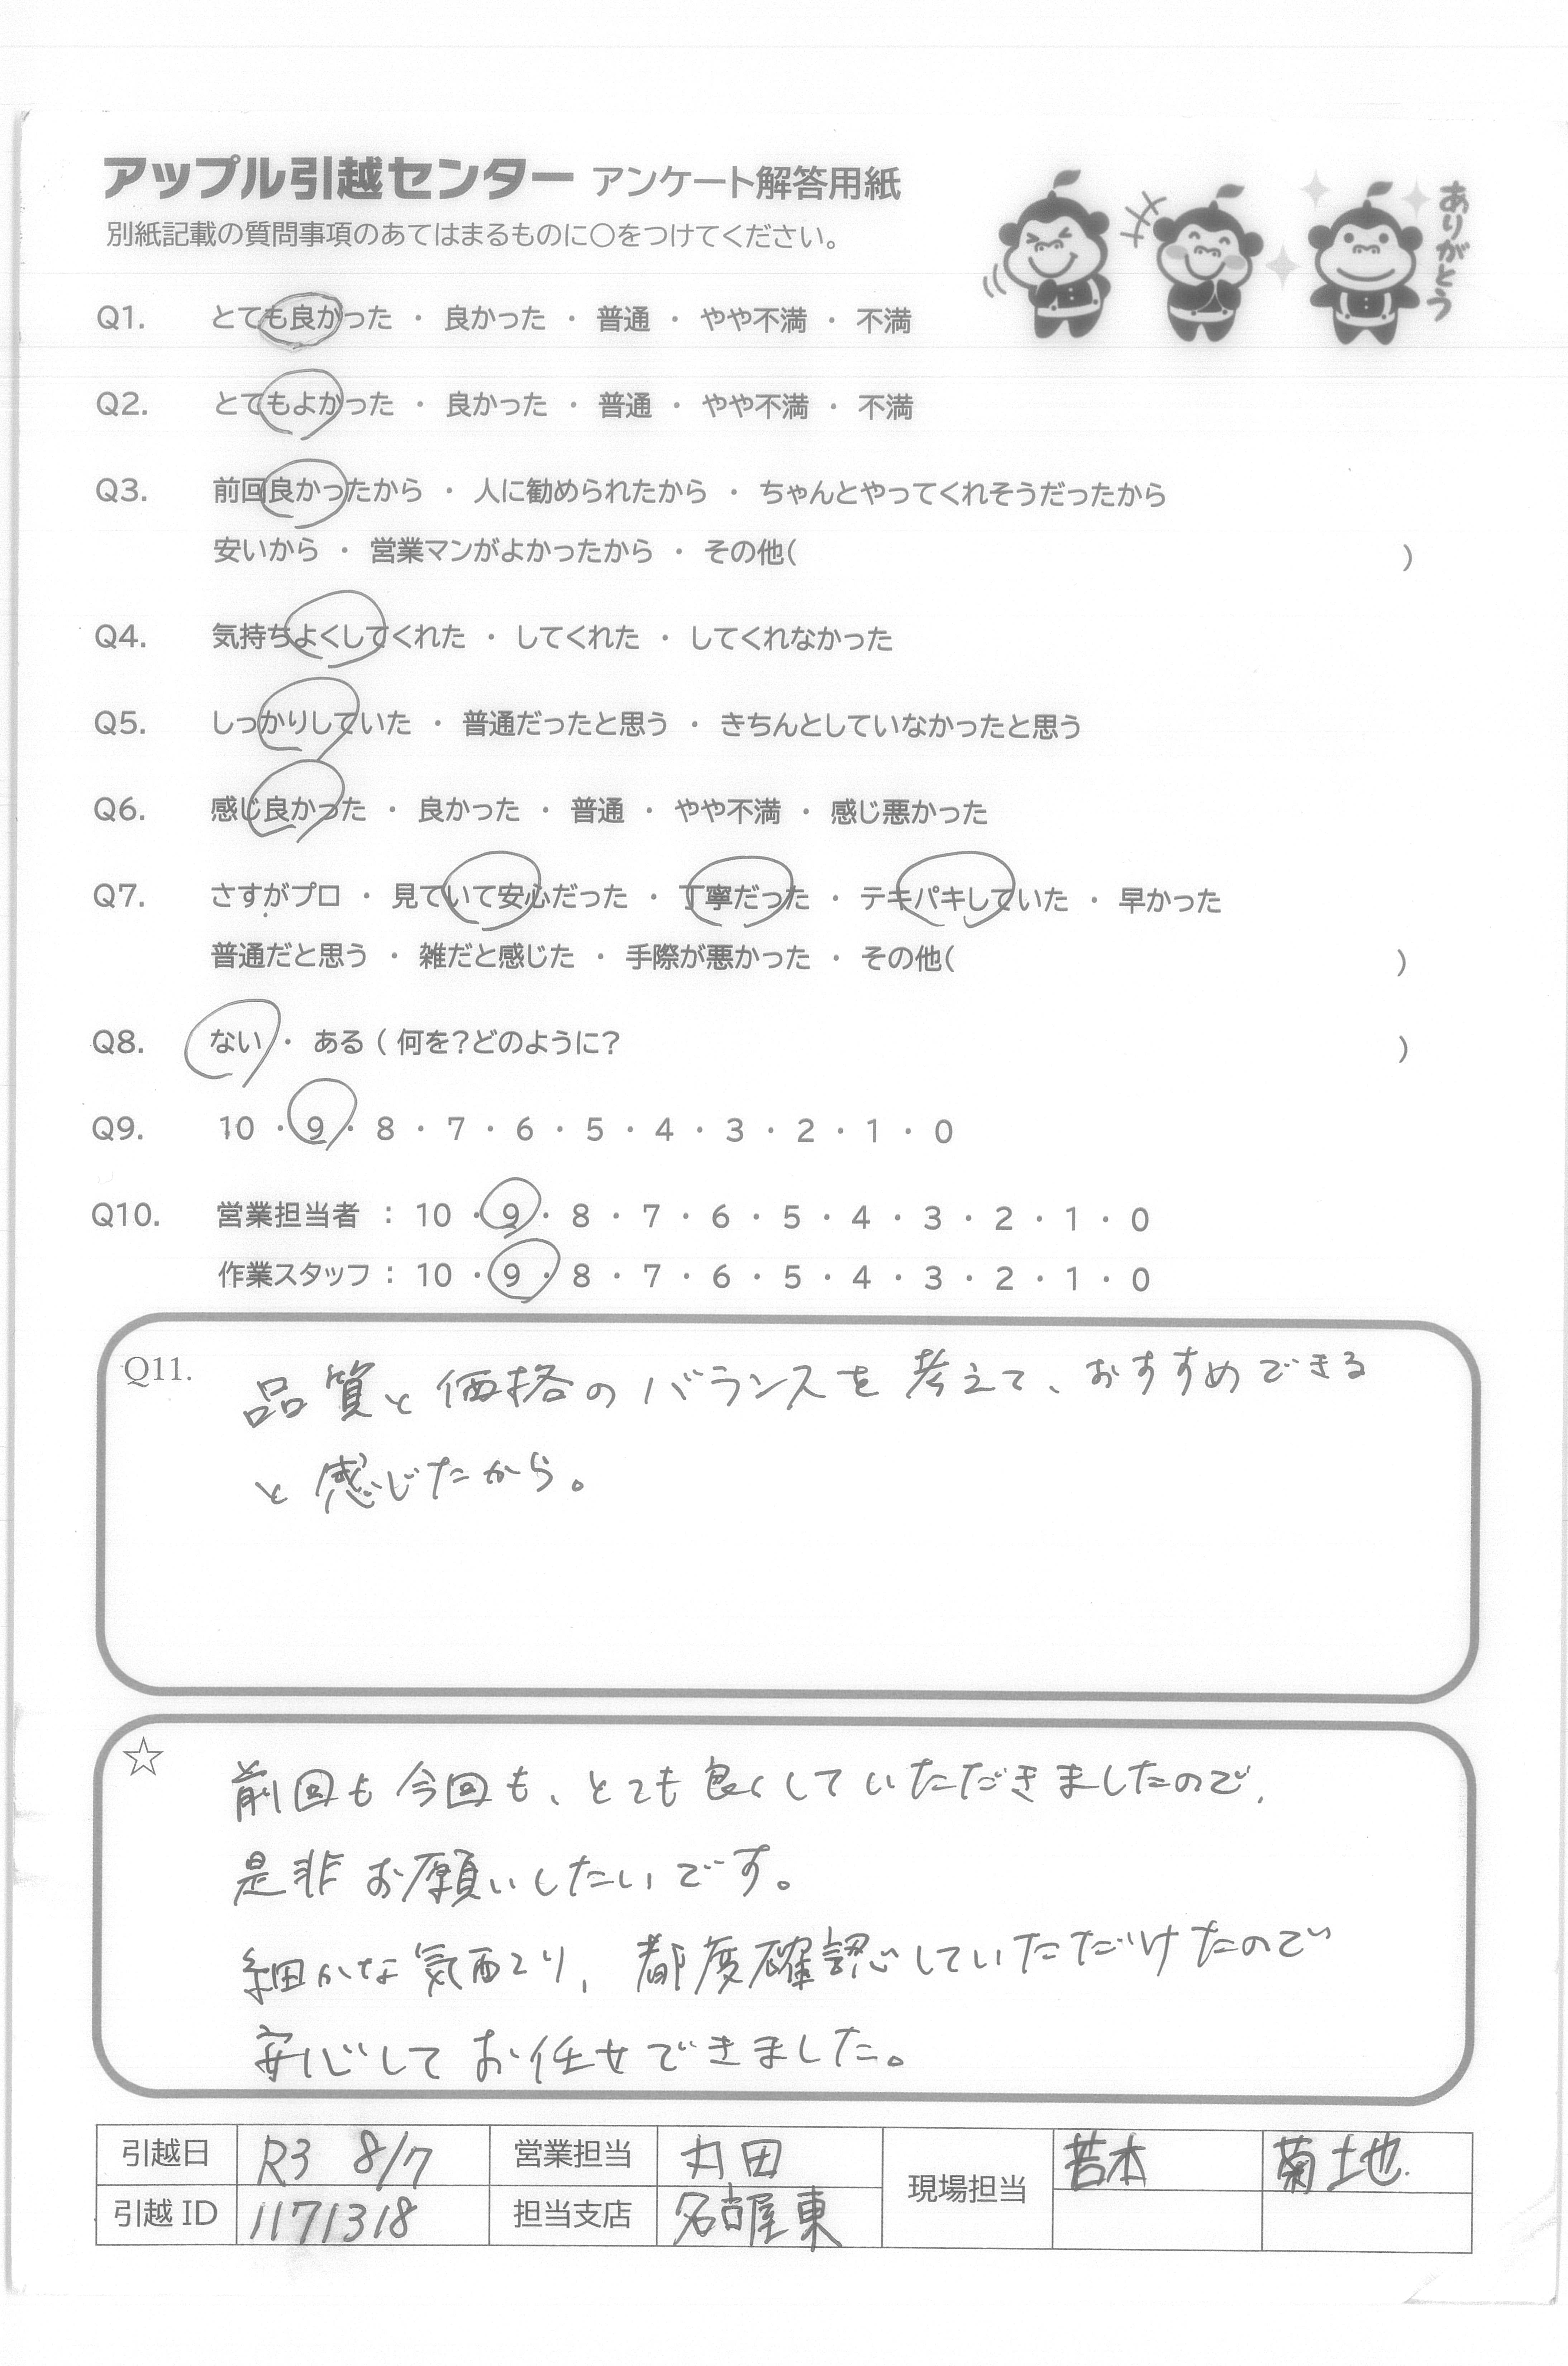 アップル引越センター アンケート解答用紙
別紙記載の質問事項のあてはまるものに○をつけてください。
ありがとう
Q1. とても良かった ・ 良かった ・ 普通 ・ やや不満 ・ 不満
Q2. とてもよかった ・ 良かった ・ 普通 ・ やや不満 ・ 不満
Q3. 前回良かったから ・ 人に勧められたから ・ ちゃんとやってくれそうだったから
安いから ・ 営業マンがよかったから ・ その他( )
Q4. 気持ちよくしてくれた ・ してくれた ・ してくれなかった
Q5. しっかりしていた ・ 普通だったと思う ・ きちんとしていなかったと思う
Q6. 感じ良かった ・ 良かった ・ 普通 ・ やや不満 ・ 感じ悪かった
Q7. さすがプロ ・ 見ていて安心だった ・ 丁寧だった ・ テキパキしていた ・ 早かった
普通だと思う ・ 雑だと感じた ・ 手際が悪かった ・ その他( )
Q8. ない ・ ある ( 何を?どのように? )
Q9. 10 ・ 9 ・ 8 ・ 7 ・ 6 ・ 5 ・ 4 ・ 3 ・ 2 ・ 1 ・ 0
Q10. 営業担当者 : 10 ・ 9 ・ 8 ・ 7 ・ 6 ・ 5 ・ 4 ・ 3 ・ 2 ・ 1 ・ 0
作業スタッフ : 10 ・ 9 ・ 8 ・ 7 ・ 6 ・ 5 ・ 4 ・ 3 ・ 2 ・ 1 ・ 0
Q11. 品質と価格のバランスを考えて、おすすめできる
と感じたから。
☆ 前回も今回も、とても良くしていただきましたので、
是非お願いしたいです。
細かな気配り、都度確認していただけたので
安心してお任せできました。
引越日 R3 8/7 営業担当 丸田 現場担当 若本 菊地
引越 ID 1171318 担当支店 名古屋東